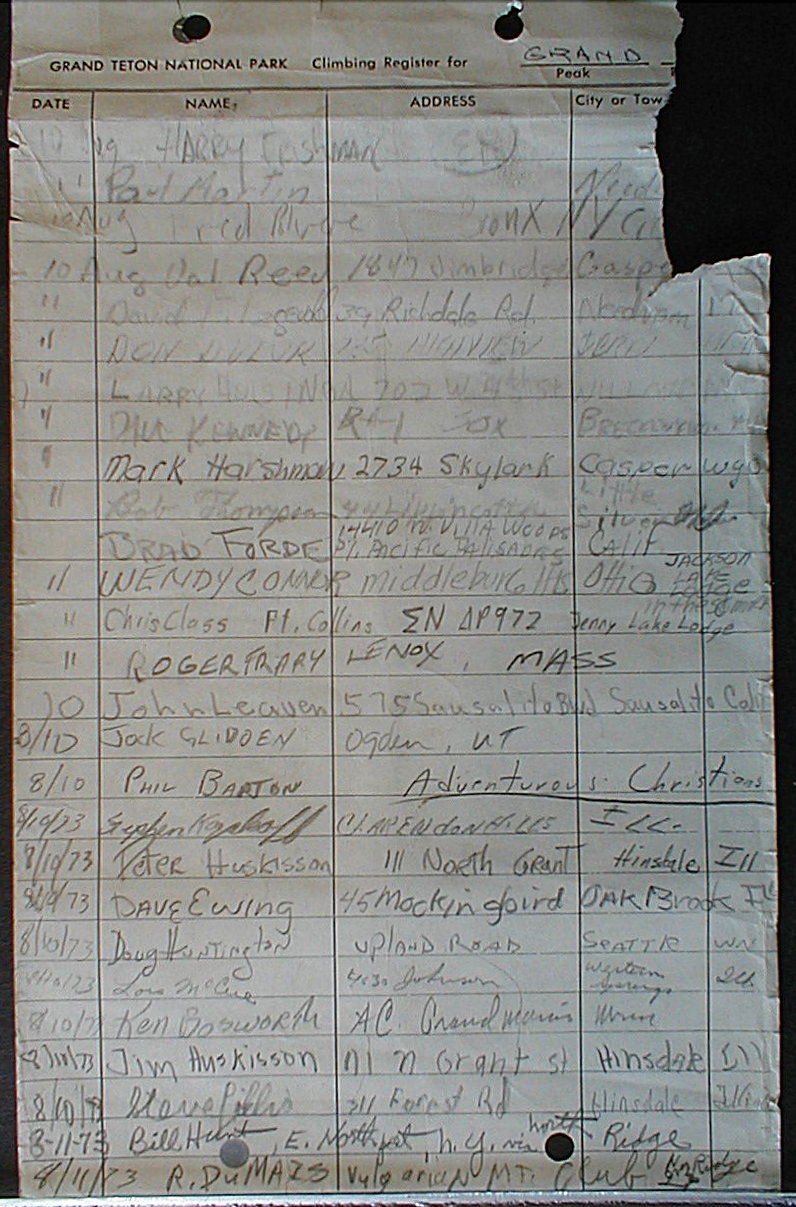 GRAND TETON NATIONAL PARK Climbing Register for GRAND
Peak
DATE NAME ADDRESS City or Tow
10 Aug HARRY FRISHMAN
" Paul Martin
Aug Bronx NY
10 Aug Val Reed 1847 Jimbridge Caspe
" David 39 Richdale Rd. Needham
" DON
" LARRY 707 W. 4th St
" KENNEDY Box
" Mark Harshman 2734 Skylark Casper wyo
" Bob Thompson Little Silver
BRAD FORDE 14410 W. VILLA WOODS Pl. Pacific PALISADES CALIF
" WENDY CONNOR middleburg Hts OHIO JACKSON LAKE Lodge
" Chris Class Ft. Collins ΣN ΔP972 Jenny Lake Lodge
" ROGER FRARY LENOX, MASS
10 John Leaven 575 Sausalito Blvd Sausalito Cali
8/10 Jock GLIDDEN Ogden, UT
8/10 PHIL BARTON Adventurous Christians
8/10/73 Stephen CLARENdON HILLS ILL.
8/10/73 Peter Huskisson 111 North GRANT Hinsdale Ill
8/10/73 DAVE EWING 45 Mockingbird OAK Brook Ill
8/10/73 Doug HUNTINGTON UPLAND ROAD SEATTLE WN
8/10/73 Lois McCue 4030 Johnson Western Springs Ill.
8/10/73 Ken BOSWORTH A.C. Grand Marais Minn
8/10/73 Jim Huskisson 111 N Grant st Hinsdale Ill
8/10/73 Steve 311 Forest Rd Hinsdale Illinois
8-11-73 Bill Hunt, E. Northport, N.Y. via North Ridge
8/11/73 R. DUMAIS Vulgarian MT. Club Ridge